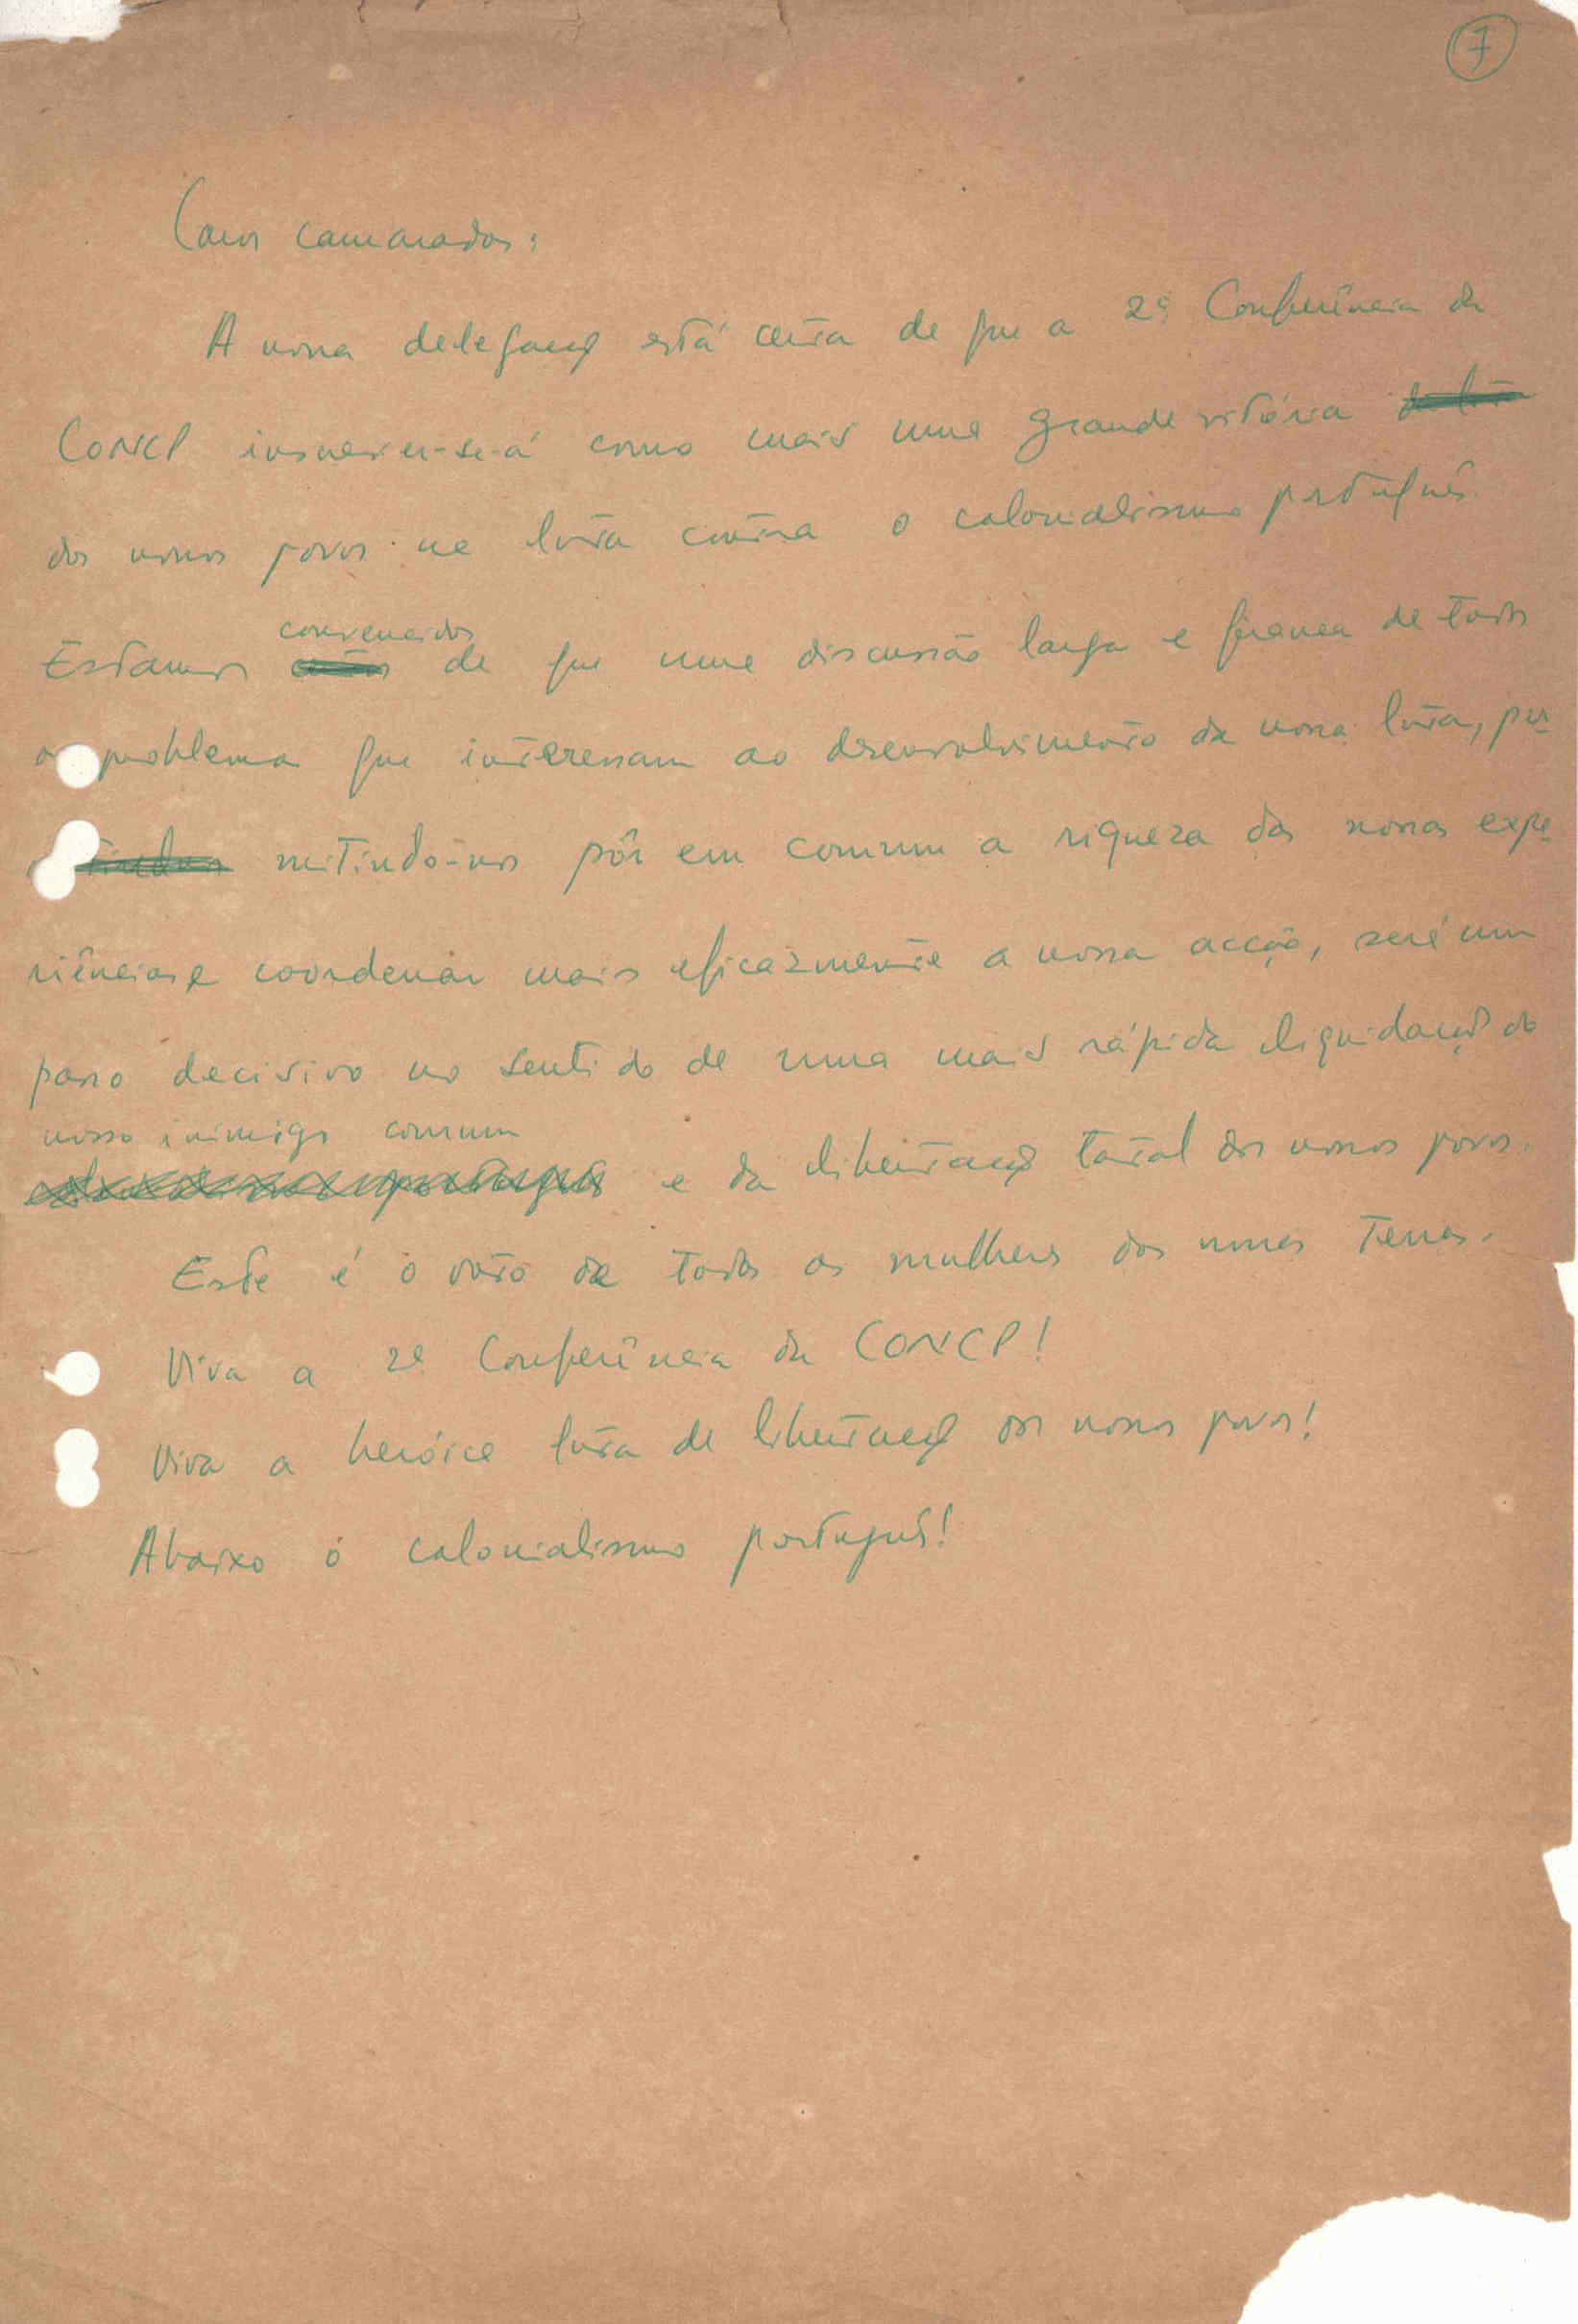 7
Caros camaradas:
A nossa delegação está certa de que a 2ª Conferência da
CONCP inscrever-se-á como mais uma grande vitória
dos nossos povos na luta contra o colonialismo português.
convencidos
Estamos de que uma discussão larga e franca de todos
os problemas que interessam ao desenvolvimento da nossa luta, per-
mitindo-nos pôr em comum a riqueza das nossas expe-
riências e coordenar mais eficazmente a nossa acção, será um
passo decisivo no sentido de uma mais rápida liquidação do
nosso inimigo comum
e da libertação total dos nossos povos.
Este é o voto de todas as mulheres das nossas terras.
Viva a 2ª Conferência da CONCP!
Viva a heróica luta de libertação dos nossos povos!
Abaixo o colonialismo português!